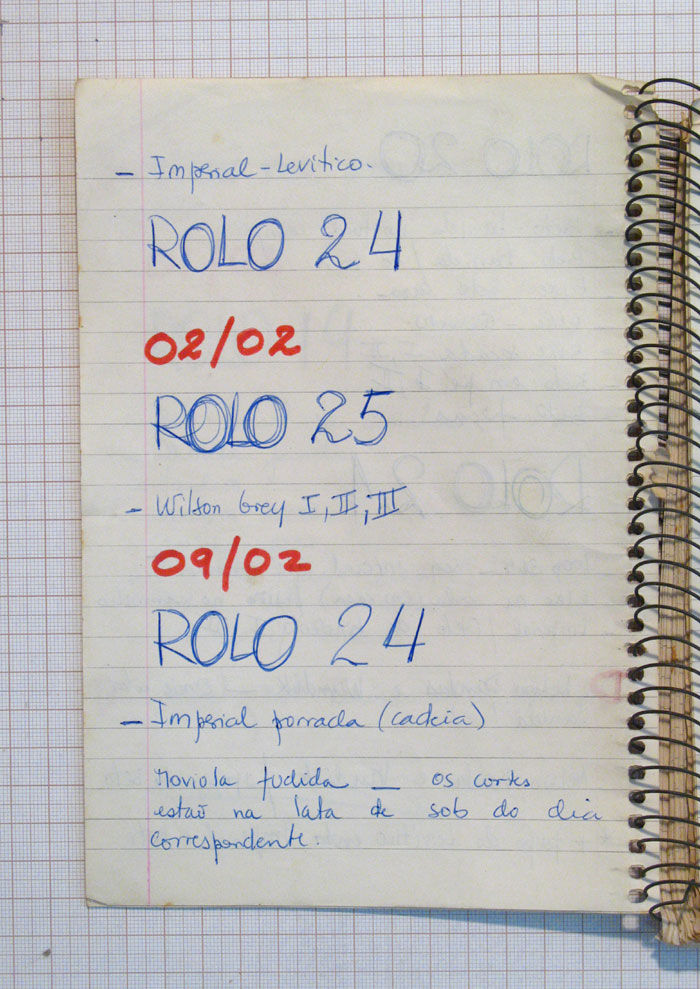 - Imperial - Levítico.
ROLO 24
02/02
ROLO 25
- Wilson Grey I, II, III
09/02
ROLO 24
- Imperial porrada (cadeia)
Moviola fudida — os cortes
estaõ na lata de sob do dia
correspondente.